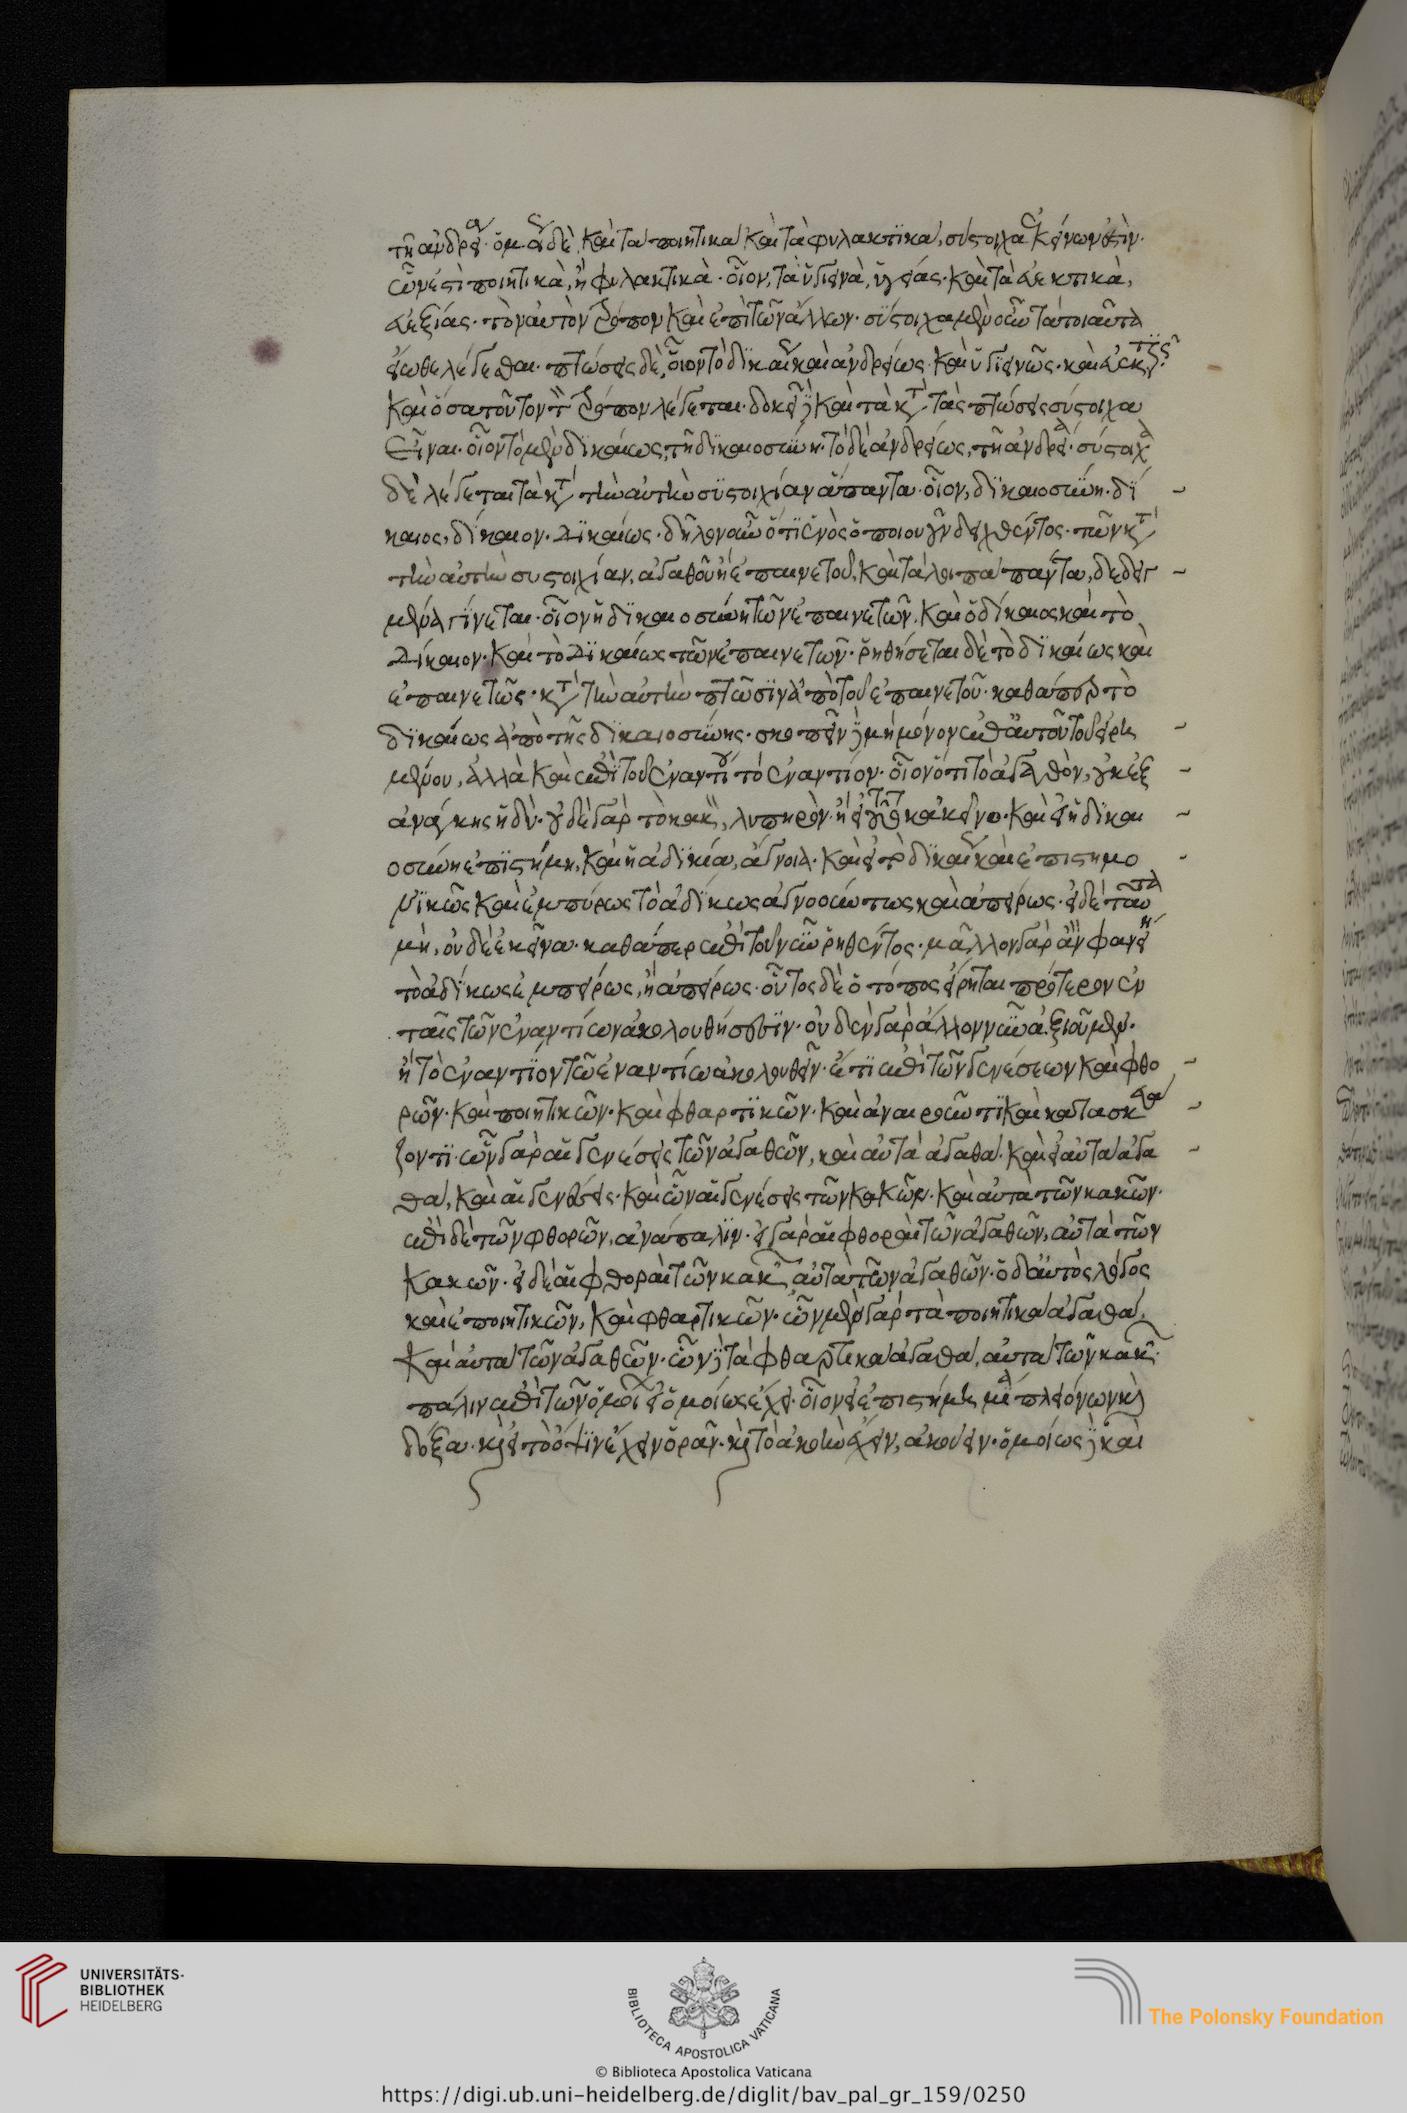 τῇ ἀνδρείᾳ· ὁμοίως δὲ καὶ τὰ ποιητικὰ καὶ τὰ φυλακτικὰ, σύστοιχα ἐκείνων ἐστὶν·
ὧν ἐστὶ ποιητικὰ, ἢ φυλακτικὰ· οἷον, τὰ ὑγιεινὰ, ὑγείας· καὶ τὰ εὐεκτικὰ,
εὐεξίας· τὸν αὐτὸν τρόπον καὶ ἐπὶ τῶν ἄλλων· σύστοιχα μὲν οὖν τὰ τοιαῦτα
εἴωθε λέγεσθαι· πτώσεις δὲ, οἷον τὸ δικαίως καὶ ἀνδρείως· καὶ ὑγιεινῶς· καὶ εὐεκτικῶς·
καὶ ὅσα τοῦτον τὸν τρόπον λέγεται· δοκεῖ δὲ καὶ τὰ κατὰ τὰς πτώσεις σύστοιχα
εἶναι· οἷον τὸ μὲν δικαίως, τῇ δικαιοσύνῃ· τὸ δὲ ἀνδρείως, τῇ ἀνδρείᾳ· σύστοιχα
δὲ λέγεται τὰ κατὰ τὴν αὐτὴν συστοιχίαν ἅπαντα· οἷον, δικαιοσύνη· δί
καιος, δίκαιον· δικαίως· δῆλον οὖν ὅτι ἑνὸς ὁποιουοῦν δειχθέντος· τῶν κατὰ
τὴν αὐτὴν συστοιχίαν, ἀγαθοῦ ἢ ἐπαινετοῦ, καὶ τὰ λοιπὰ πάντα, δεδειγ
μένα γίνεται· οἷον ἡ δικαιοσύνη τῶν ἐπαινετῶν, καὶ ὁ δίκαιος καὶ τὸ
δίκαιον· καὶ τὸ δικαίως τῶν ἐπαινετῶν· ῥηθήσεται δὲ τὸ δικαίως καὶ
ἐπαινετῶς· κατὰ τὴν αὐτὴν πτῶσιν ἀπὸ τοῦ ἐπαινετοῦ· καθάπερ τὸ
δικαίως ἀπὸ τῆς δικαιοσύνης· σκοπεῖν δὲ μὴ μόνον ἐπ' αὐτοῦ τοῦ εἰρη
μένου, ἀλλὰ καὶ ἐπὶ τοῦ ἐναντίου τὸ ἐναντίον· οἷον ὅτι τὸ ἀγαθὸν, οὐκ ἐξ
ἀνάγκης ἡδὺ· οὐδὲ γὰρ τὸ κακὸν, λυπηρὸν· ἢ εἰ τοῦτο κἀκεῖνο· καὶ εἰ ἡ δικαι
οσύνη ἐπιστήμη, καὶ ἡ ἀδικία, ἄγνοια· καὶ εἰ τὸ δικαίως καὶ ἐπιστημο
νικῶς καὶ ἐμπείρως τὸ ἀδίκως ἀγνοούντως καὶ ἀπείρως· εἰ δὲ ταῦτα
μὴ, οὐδὲ ἐκεῖνα· καθάπερ ἐπὶ τοῦ νῦν ῥηθέντος· μᾶλλον γὰρ ἂν φανείη
τὸ ἀδίκως ἐμπείρως, ἢ ἀπείρως· οὗτος δὲ ὁ τόπος εἴρηται πρότερον ἐν
ταῖς τῶν ἐναντίων ἀκολουθήσεσιν· οὐδὲν γὰρ ἄλλο νῦν ἀξιοῦμεν·
ἢ τὸ ἐναντίον τῷ ἐναντίῳ ἀκολουθεῖν· ἔτι ἐπὶ τῶν γενέσεων καὶ φθο
ρῶν· καὶ ποιητικῶν· καὶ φθαρτικῶν· καὶ ἀναιροῦντι καὶ κατασκευά
ζοντι· ὧν γὰρ αἱ γενέσεις τῶν ἀγαθῶν, καὶ αὐτὰ ἀγαθὰ· καὶ εἰ αὐτὰ ἀγα
θὰ, καὶ αἱ γενέσεις· καὶ ὧν αἱ γενέσεις τῶν κακῶν· καὶ αὐτὰ τῶν κακῶν·
ἐπὶ δὲ τῶν φθορῶν, ἀνάπαλιν· εἰ γὰρ αἱ φθοραὶ τῶν ἀγαθῶν, αὐτὰ τῶν
κακῶν· εἰ δὲ αἱ φθοραὶ τῶν κακῶν, αὐτὰ τῶν ἀγαθῶν· ὁ δ' αὐτὸς λόγος
καὶ ἐπὶ ποιητικῶν, καὶ φθαρτικῶν· ὧν μὲν γὰρ τὰ ποιητικὰ ἀγαθὰ,
καὶ αὐτὰ τῶν ἀγαθῶν· ὧν δὲ τὰ φθαρτικὰ ἀγαθὰ, αὐτὰ τῶν κακῶν·
πάλιν ἐπὶ τῶν ὁμοίων εἰ ὁμοίως ἔχει· οἷον εἰ ἐπιστήμη μία πλειόνων καὶ
δόξα· καὶ εἰ τὸ ὄψιν ἔχειν ὁρᾶν· καὶ τὸ ἀκοὴν ἔχειν, ἀκούειν· ὁμοίως δὲ καὶ
UNIVERSITÄTS-
BIBLIOTHEK
HEIDELBERG
BIBLIOTECA APOSTOLICA VATICANA
The Polonsky Foundation
© Biblioteca Apostolica Vaticana
https://digi.ub.uni-heidelberg.de/diglit/bav_pal_gr_159/0250